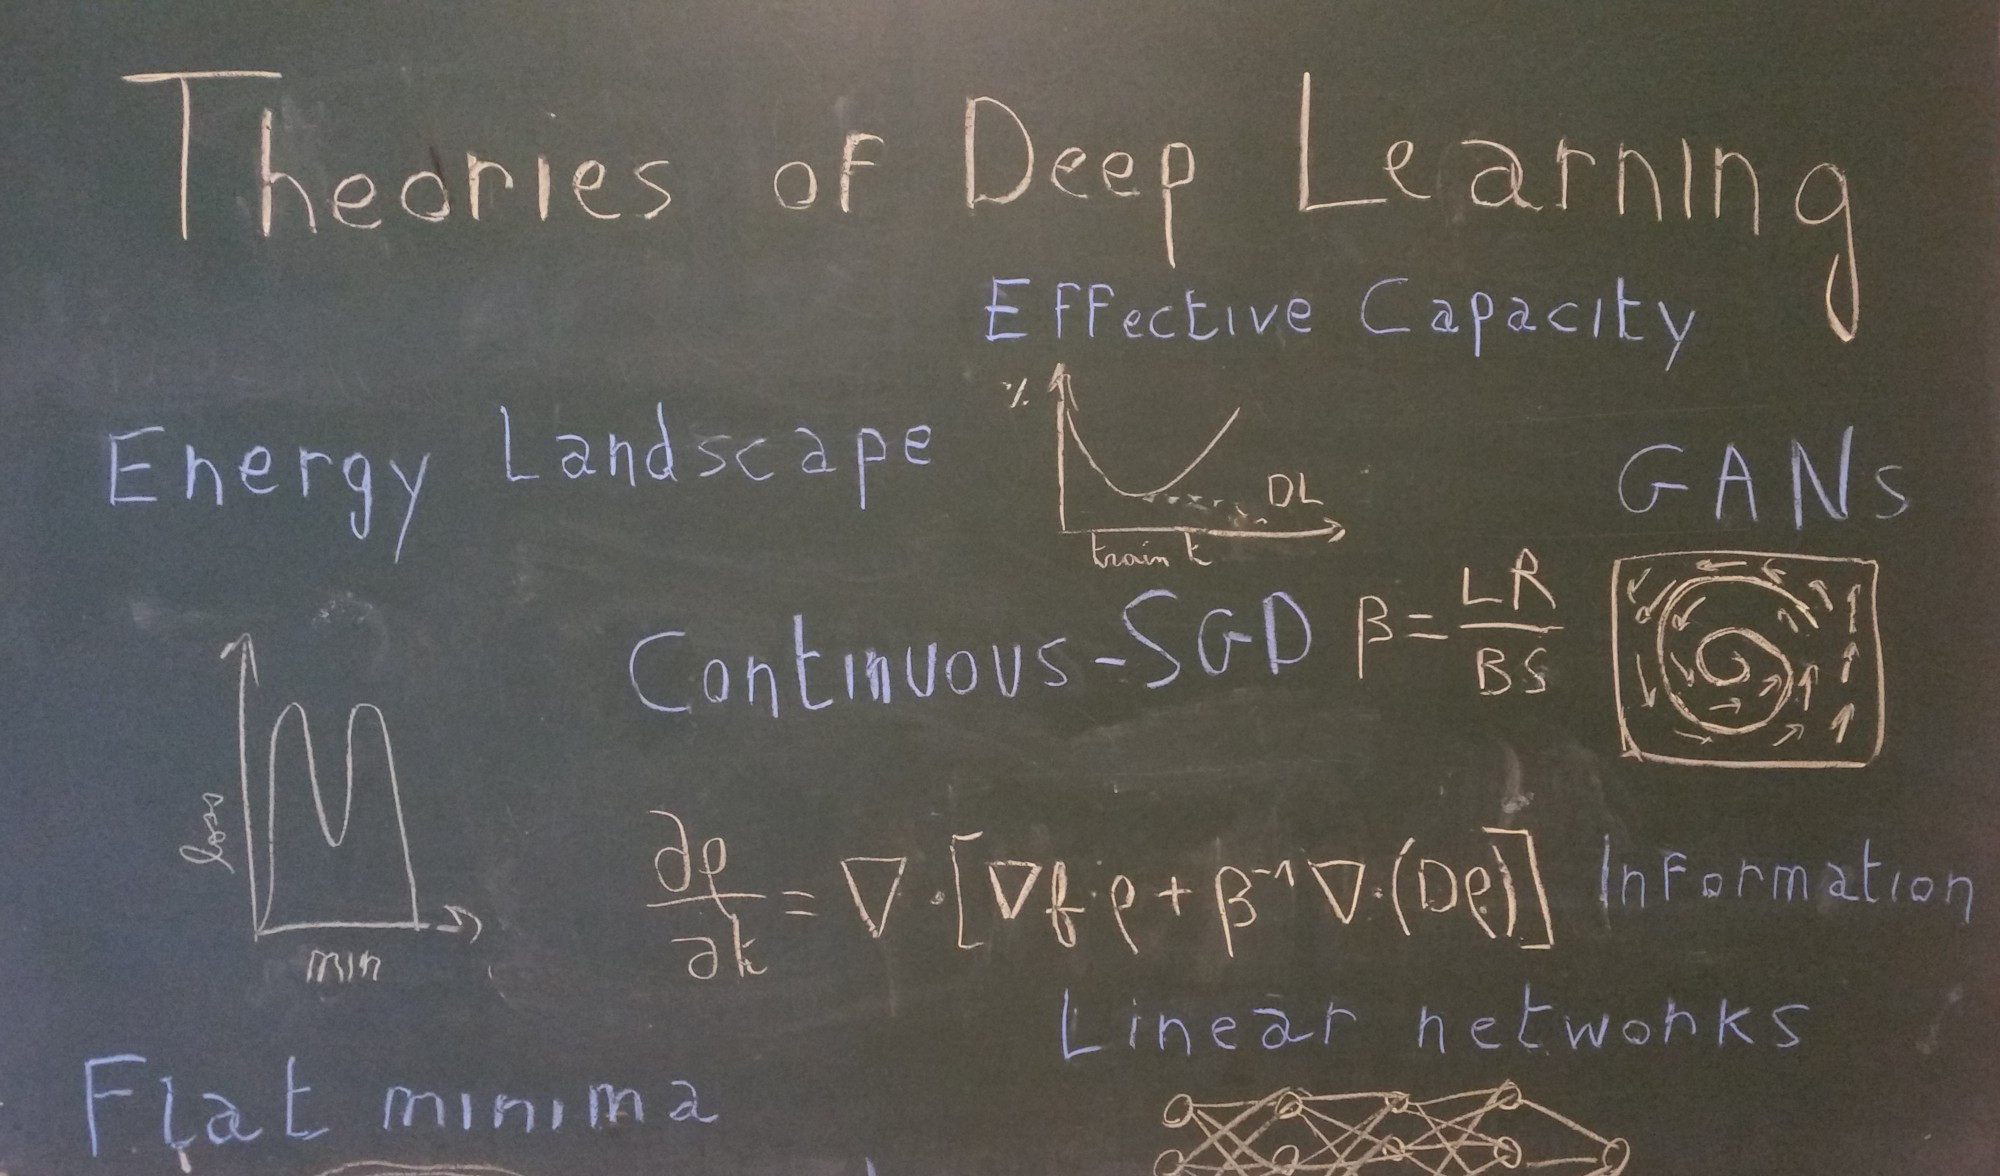 Theories of Deep Learning
Effective Capacity
%
DL
train t
Energy Landscape
loss
min
GANs
Continuous-SGD
β = LR / BS
∂ρ/∂t = ∇·[∇f·ρ + β⁻¹∇·(Dρ)]
Information
Linear networks
Flat minima